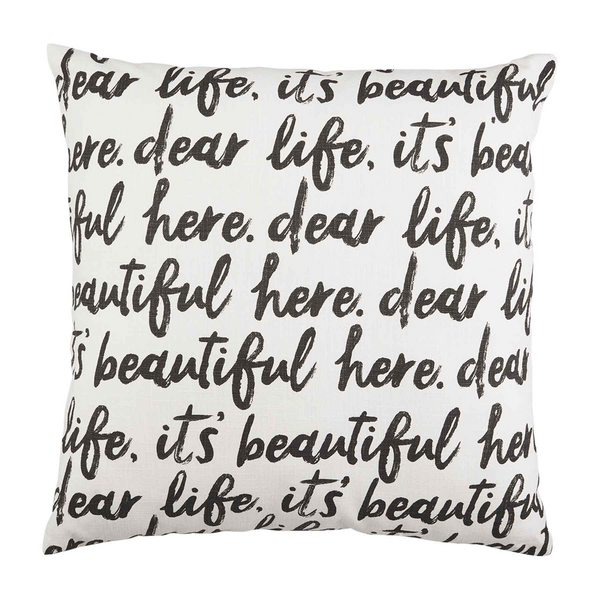 dear life, it's beautiful
here. dear life, it's beau
iful here. dear life, it
eautiful here. dear lif
it's beautiful here. dear
life, it's beautiful here
dear life, it's beautiful
here. dear life, it's beautiful